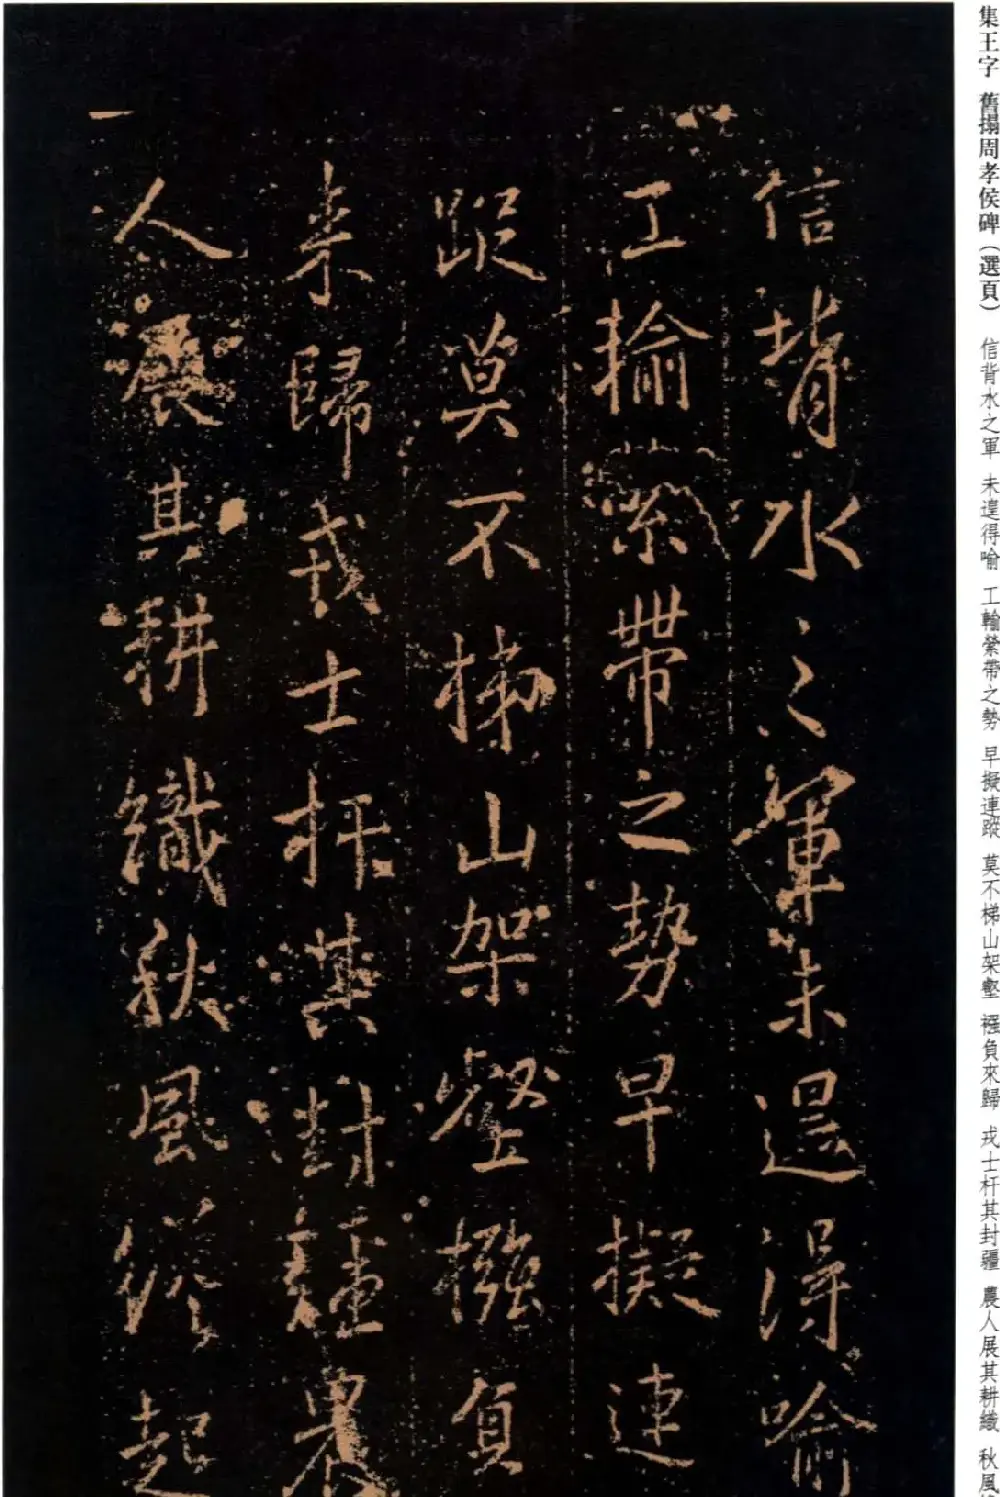 集王字 舊搨周孝侯碑（選頁） 信背水之軍 未遑得喻 工輸縈帶之勢 早擬連蹤 莫不梯山架壑 襁負來歸 戎士扞其封疆 農人展其耕織 秋風
信背水之軍未遑得喻
工輸縈帶之勢早擬連
蹤莫不梯山架壑襁負
來歸戎士扞其封疆農
人展其耕織秋風總起